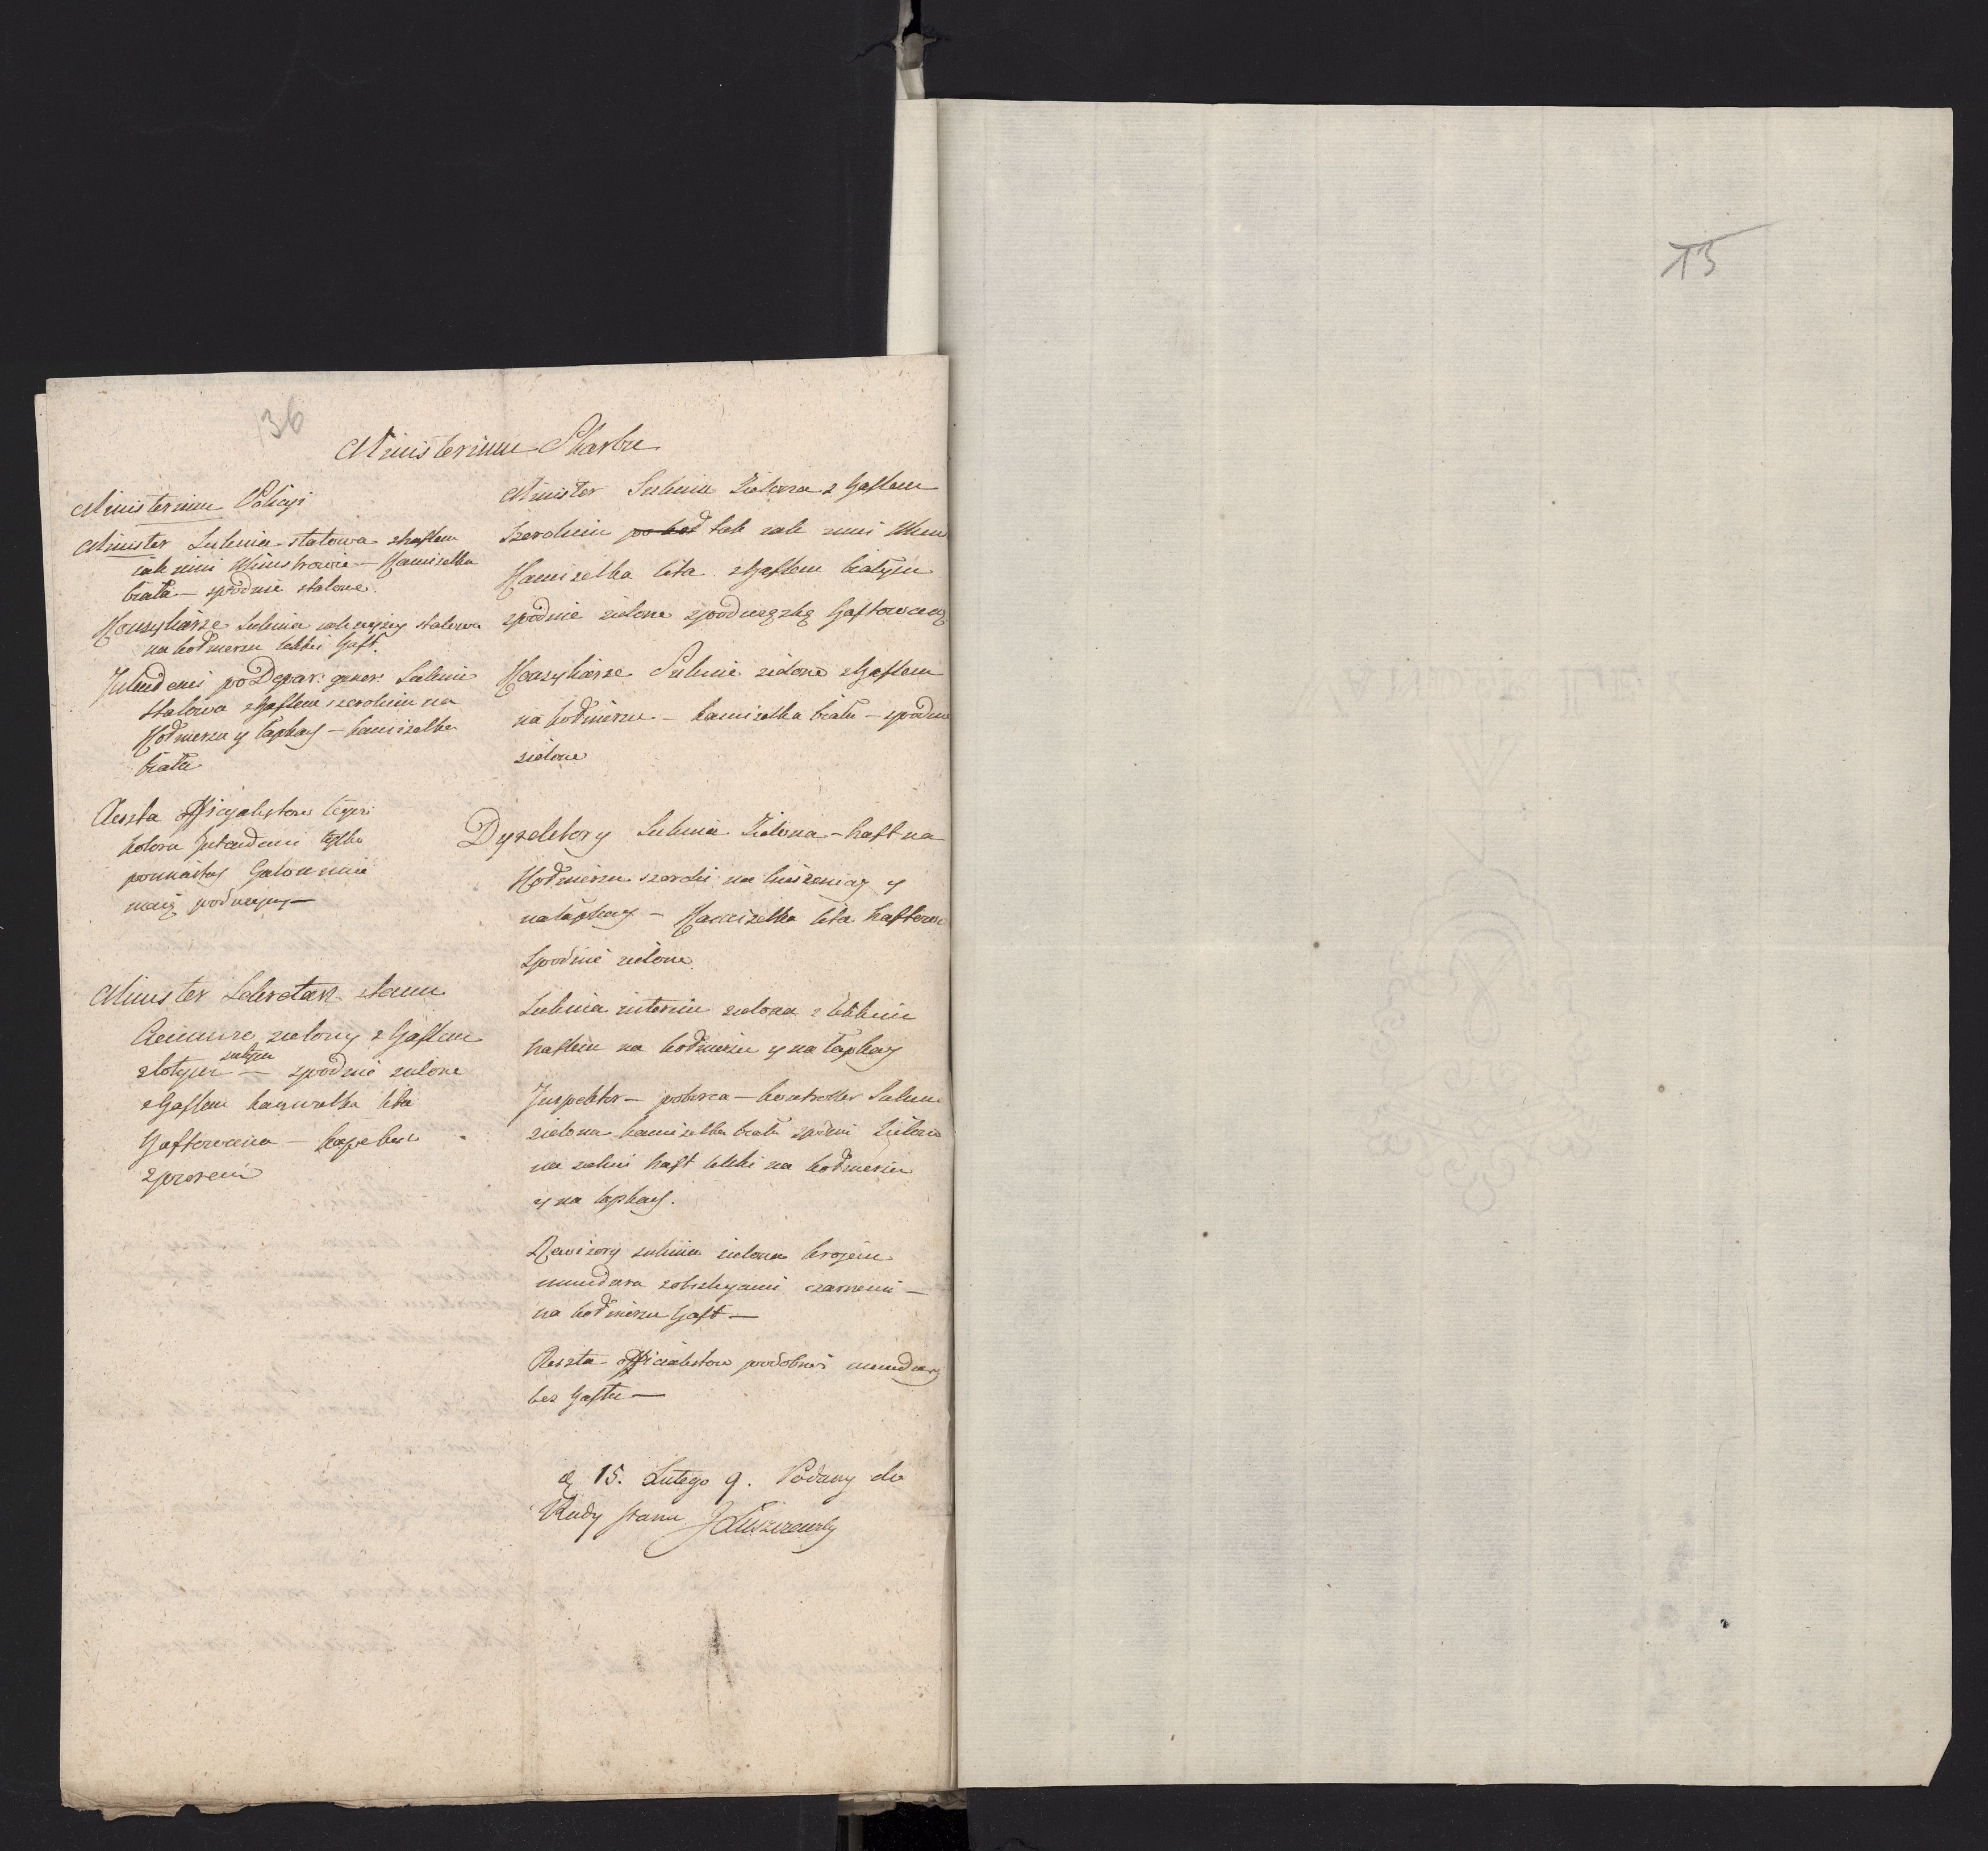 136
Ministerium Skarbu
Ministerium Policyi
Minister Suknia stalowa z haftem
iak inni Ministrowie — Kamizelka
biała — spodnie stalowe.
Konsyliarze Suknia iak wyżey stalowa
na kołnierzu lekki haft.
Intendenci po Depar: gener: Suknie
stalowa z haftem szerokim na
Kołnierzu y łapkach — kamizelka
biała
Reszta Officyalistow teyże
koloru Intendenci tylko
pomiastach Galonami
maią
Minister Sekretarz stanu
zielony z haftem
złotym — spodnie zielone
z haftem kamizelka lita
haftowana — kapelusz
z piorem
Minister Suknia Zielona z haftem
szerokim po koł tak iak inni Mini
Kamizelka lita z haftem białym
spodnie zielone z podwiązką haftowaną
Konsyliarze Suknie zielone z haftem
na kołnierzu — kamizelka biała — spodnie
zielone
Dyrektory Suknia Zielona — haft na
Kołnierzu szeroki na kieszeniach y
na łapkach — Kamizelka lita haftow
Spodnie zielone
Suknia interim zielona z lekkim
haftem na kołnierzu y na łapkach
Inspektor — poborca — kontroller Suknie
zielona kamizelka biała spodnie Zielone
na sukni haft lekki na kołnierzu
y na łapkach.
Rewizory suknia zielona kroiem
mundura z obszlegami czarnemi —
na kołnierzu haft —
Reszta officialistow podobnie mundury
bez haftu —
d 15. Lutego 9. Podany do
Rady stanu J Łuszczewski
13